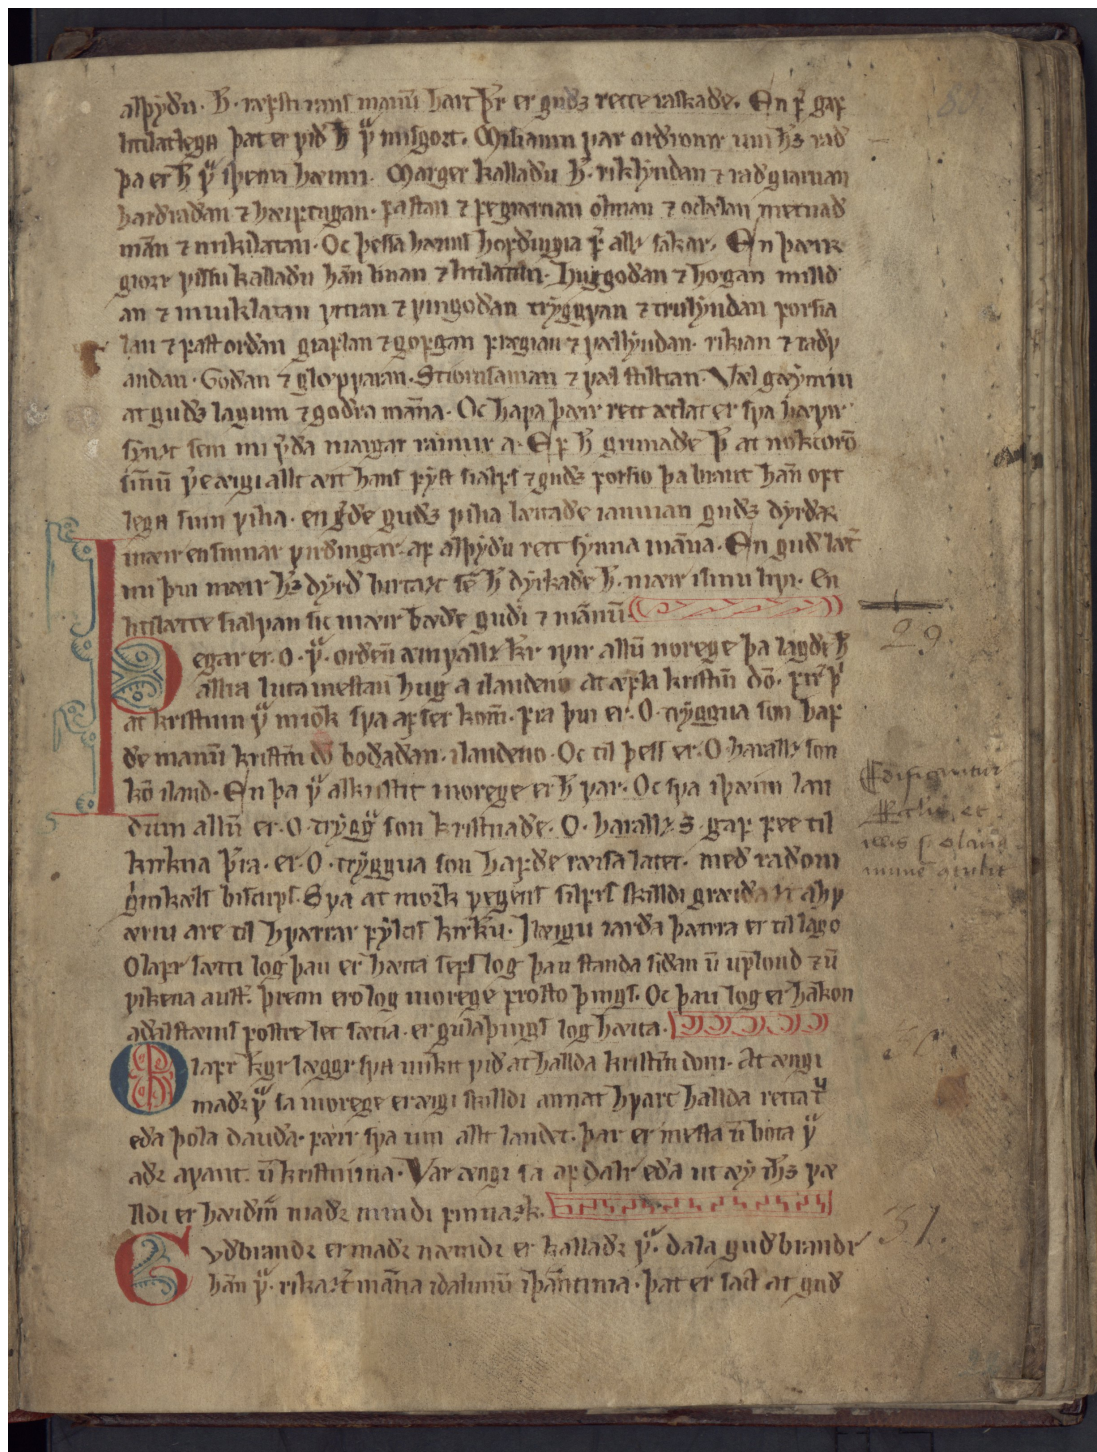 alþyðu. h̅. ræfsti rans mannū hart þr̅ er guðs rette raskaðe. En f̅ gaf
litilatlega þat er við h̅ v̅ misgort. Misiamn var orðromr um h̅s rað
þa er h̅ v̅ iþema hæimi. Marger kallaðu h̅. riklyndan ⁊ raðgiarnan
harðraðan ⁊ hæiptugan. fastan ⁊ fegiarnan olman ⁊ odælan metnað
man̅ ⁊ mikilatan. Oc þessa hæims hofðingia f̅ allz sakar. En þæir
giorr vissu kallaðu han̅ linan ⁊ litilatan. huggoðan ⁊ hogan milld
an ⁊ miuklatan vitran ⁊ vingoðan tryggvan ⁊ trulyndan forsia
lan ⁊ fastorðan giaflan ⁊ gofgan frægian ⁊ vællyndan. rikian ⁊ raðv
andan. Goðan ⁊ glopvaran. Stiornsaman ⁊ væl stilltan. Væl gæymin
at guðs lagum ⁊ goðra man̅na. Oc hafa þæir rett ætlat er sva hæfir
synzt sem nu v̅ða margar iarnir a. Ef h̅ grunaðe þ̅ at nokcorō
sin̅ū v̅e æigi allt æitt hans fyst sialfs ⁊ guðs forsio þa braut han̅ oft
lega sun vilia. en g̅ðe guðs vilia lættaðe iamnan guðs dyrðar
mæir en sinnar virðingar. af alþyðu rett synna man̅na. En guð læt̅
nu þui mæir h̅s dyrð birtazt se̅ h̅ dyrkaðe h̅. mæir isinu livi. En
litilætte sialvan sic mæir bæðe guði ⁊ man̅ū
Þegar er. O. v̅. orðen̅ æinvallz kr̅ ivir allū norege þa lagðe h̅
allra luta mestan hug a ilandeno at æfla kristin̅ do̅. firir þ̅
at kristnin v̅ miok sva after kom̅. fra þui er. O. tryggua son haf
ðe mannū kristin̅ do̅ boðaðan. ilandeno. Oc til þess er. O. harallz son
ko̅ iland. En þa v̅ alkristit inorege er h̅ var. Oc sva iþæim lan
dum allū er. O. trygg̅ son kristnaðe. O. harallz. s. gaf fee til
kirkna þr̅a. er. O. tryggua son hafðe ræisa latet. með raðom
grimkæls biscups. Sva at mork vegens silfrs skilldi græiðazt a hv
æriu are til hværrar fylcis kirkiu. J læigu iarða þærra er til lago
Olafr sætti log þau er hæita sefs log þau standa siðan u̅ uplond ⁊ u̅
vikena aust̅. þrenn ero log inorege frosto þings. Oc þau log er hakon
aðalstæins fostre let sætia. er gulaþings log hæita.
Olafr kgr læggr sva mikit við at hallda kristin̅ dom. At ængi
maðz v̅ sa inorege er æigi skilldi annat hvart hallda retta t̅v
eða þola dauða. færr sva um allt landet. þar er mesta u̅ bota v̅
aðz avant. u̅ kristnina. Var ængi sa af dalr eða ut æy ih̅s væ
lldi er hæiðin̅ maðz mindi finnazk.
Guðbrandz er maðz næmdz er kallaðz v̅. dala guðbrandr
han̅ v̅. rikazt̅ man̅na idalunū iþan̅ tima. þat er sact at guð
29.
31.